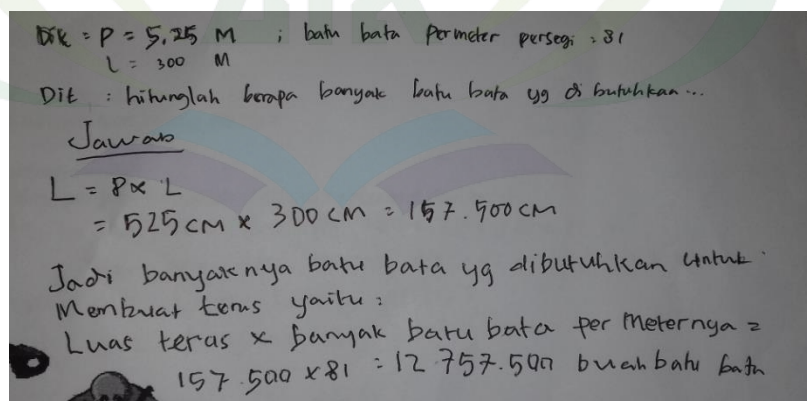 Dik = P = 5,25 M ; batu bata Permeter persegi : 81
L = 300 M
Dit : hitunglah berapa banyak batu bata yg di butuhkan ...
Jawab
L = P x L
= 525 CM x 300 CM = 157.500 CM
Jadi banyaknya batu bata yg dibutuhkan untuk
Membuat teras yaitu :
Luas teras x banyak batu bata per Meternya =
157.500 x 81 = 12.757.500 buah batu bata